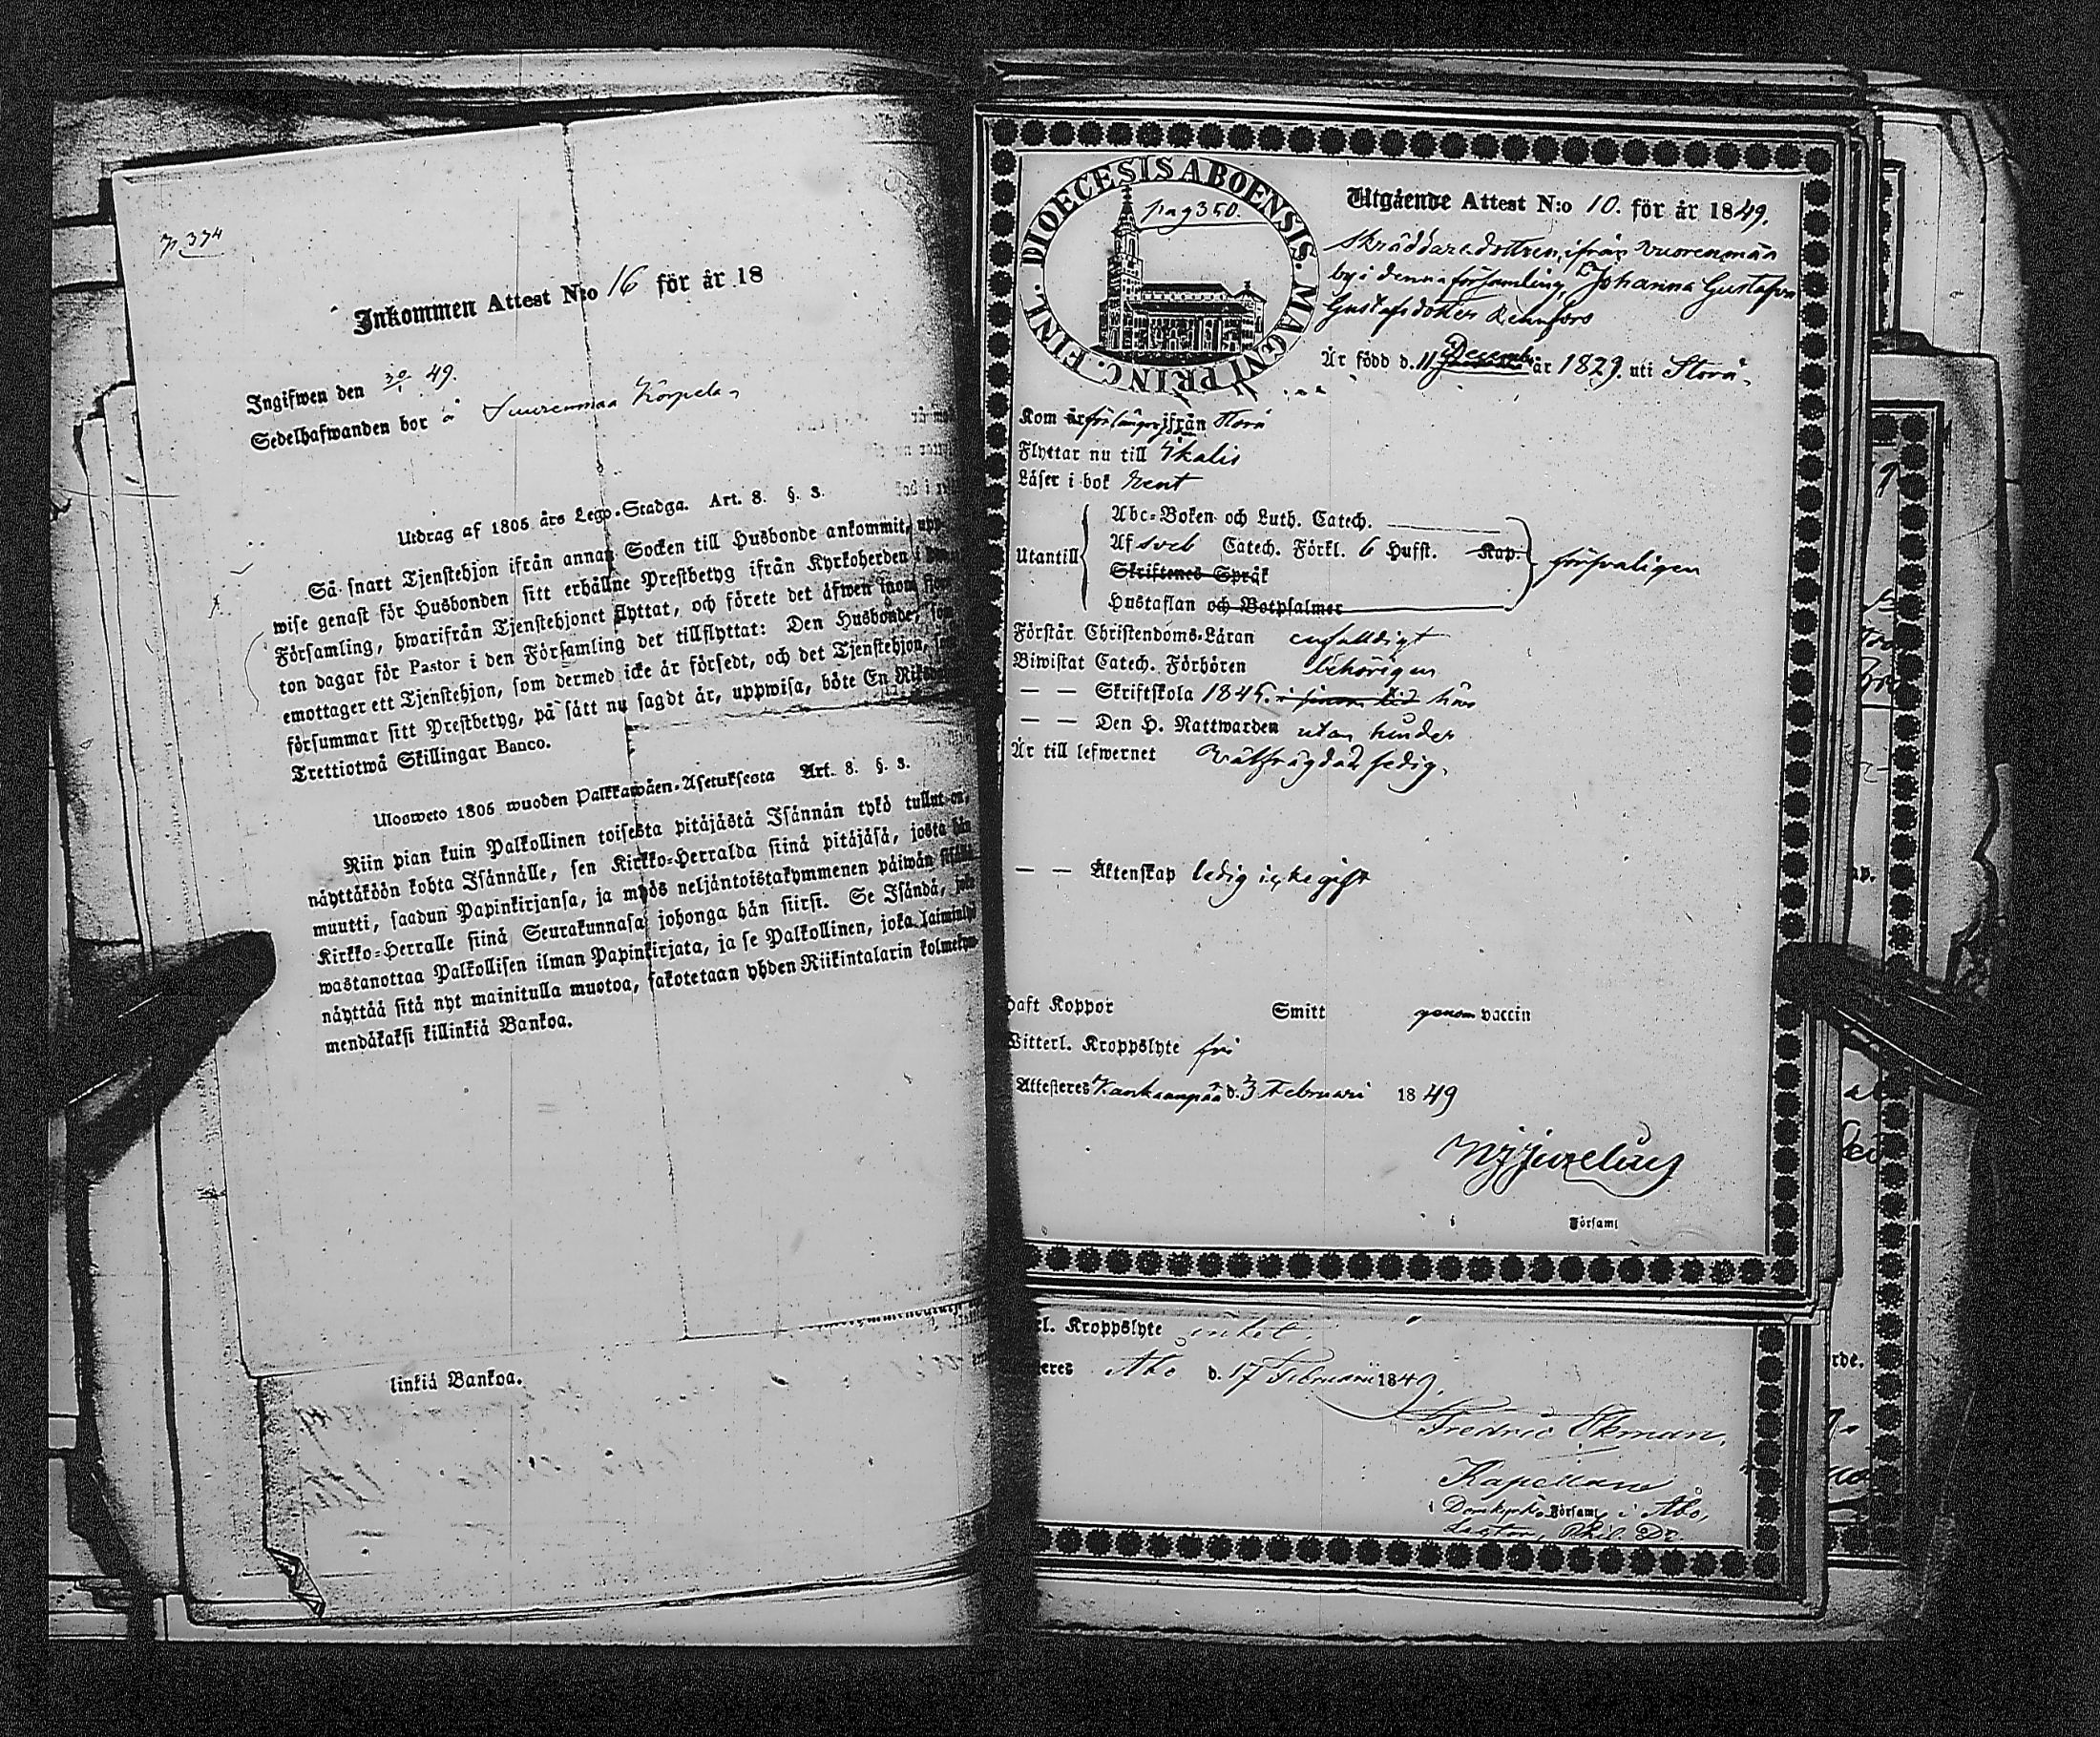 p. 374
Inkommen Attest N:o 16 för år 18
Ingifwen den 30/1 49.
Sedelhafwanden bor å Suurenmaa Korpela
Utdrag af 1805 års Lego-Stadga. Art. 8. §. 3.
Så snart Tjenstehjon ifrån annan Socken till Husbonde ankommit, upp-
wise genast för Husbonden sitt erhållne Prestbetyg ifrån Kyrkoherden i
Församling, hwarifrån Tjenstehjonet flyttat, och förete det åfwen inom
ton dagar för Pastor i den Församling det tillflyttat: Den Husbonde, som
emottager ett Tjenstehjon, som dermed icke är försedt, och det Tjenstehjon,
försummar sitt Prestbetyg, på sått nu sagdt år, uppwisa, böte En
Trettiotwå Skillingar Banco.
Ulosweto 1805 wuoden Palkkawåen-Asetuksesta Art. 8. §. 3.
Niin pian kuin Palkollinen toisesta pitåjåstå Isånnån tykö tullut on,
nåyttåköön kohta Isånnålle, sen Kirkko-Herralda siinå pitåjåså, josta hån
muutti, saadun Papinkirjansa, ja myös neljåntoistakymmenen påiwån
Kirkko-Herralle siinå Seurakunnasa johonga hån siirsi. Se Isåndå, joka
wastanottaa Palkollisen ilman Papinkirjata, ja se Palkollinen, joka
nåyttåå sitå nyt mainitulla muotoa, sakotetaan yhden Riikintalarin kolmekym-
mendåkaksi killinkiå Bankoa.
linkiå Bankoa.
DIOECESIS ABOENSIS. MAGNI PRINC. FINL.
pag 350.
Utgående Attest N:o 10. för år 1849.
Skräddaredottren, ifrån Vuorenmaa
by i denna församling, Johanna Gustafva
Gustafsdotter Renfors
År född d. 11 December år 1829. uti Storå.
Kom år för längre ifrån Storå
Flyttar nu till Ikalis
Låser i bok rent
Utantill
Abc-Boken och Luth. Catech.
Af Sveb Catech. Förkl. 6 Hufst. Kap.
Skriftenes Språk
Hustaflan och Botpsalmer
försvarligen
Förstår Christendoms-Låran enfalldigt
Biwistat Catech. Förhören behörigen
— — Skriftskola 1845.
— — Den H. Nattwarden utan hinder
År till lefwernet välfrägdad sedig.
— — Åktenskap ledig icke gift
Haft Koppor Smitt genom vaccin
Witterl. Kroppslyte fri
Attesteres Kankaanpää d. 3 Februari 1849
i Församl
rl. Kroppslyte intet.
eres Åbo d. 17 Februarii 1849.
Fredric Ekman,
Kapellan
i Domkyrko Församl. i Åbo,
Lector, Phil. Dr